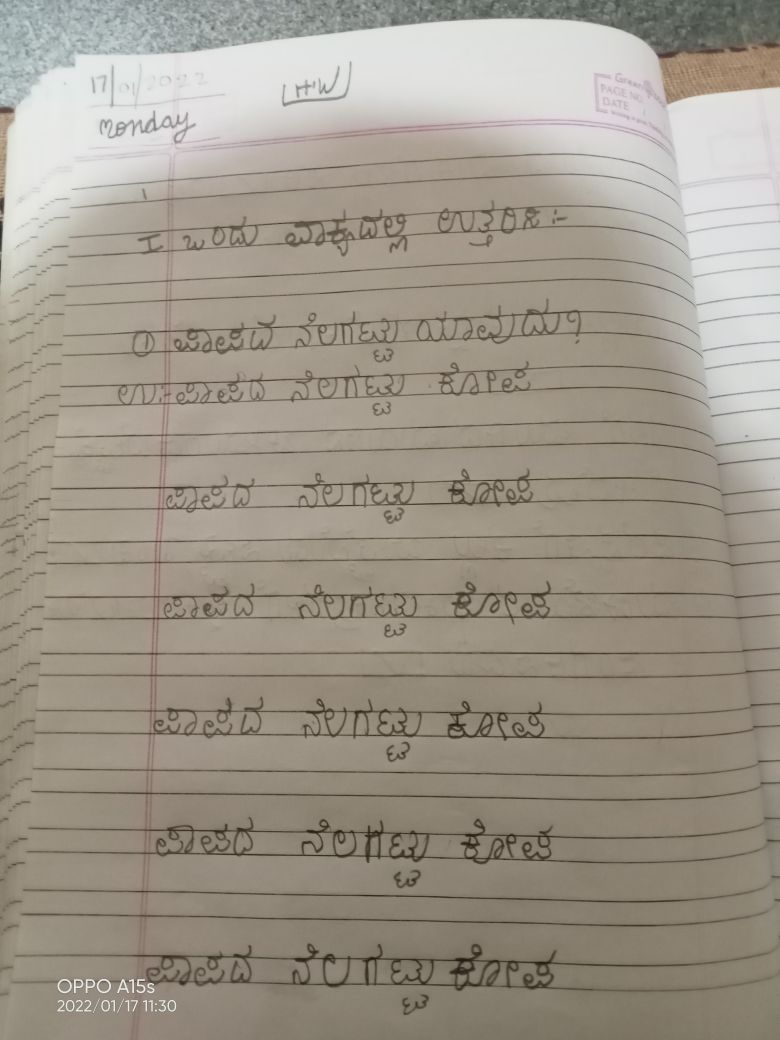 17/01/2022
HW
Monday
Green
PAGE NO.
DATE
I ಒಂದು ವಾಕ್ಯದಲ್ಲಿ ಉತ್ತರಿಸಿ :-
① ಪಾಪದ ನೆಲಗಟ್ಟು ಯಾವುದು?
ಉ:- ಪಾಪದ ನೆಲಗಟ್ಟು ಕೋಪ
ಪಾಪದ ನೆಲಗಟ್ಟು ಕೋಪ
ಪಾಪದ ನೆಲಗಟ್ಟು ಕೋಪ
ಪಾಪದ ನೆಲಗಟ್ಟು ಕೋಪ
ಪಾಪದ ನೆಲಗಟ್ಟು ಕೋಪ
ಪಾಪದ ನೆಲಗಟ್ಟು ಕೋಪ
OPPO A15s
2022/01/17 11:30